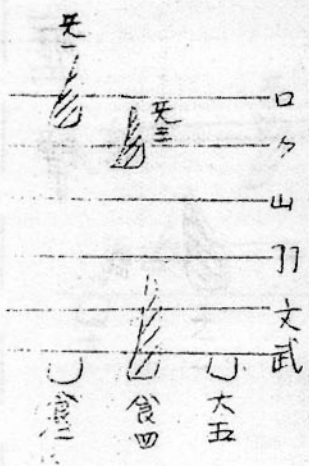 无一
无三
口
ク
山
文
武
食二
食四
大五